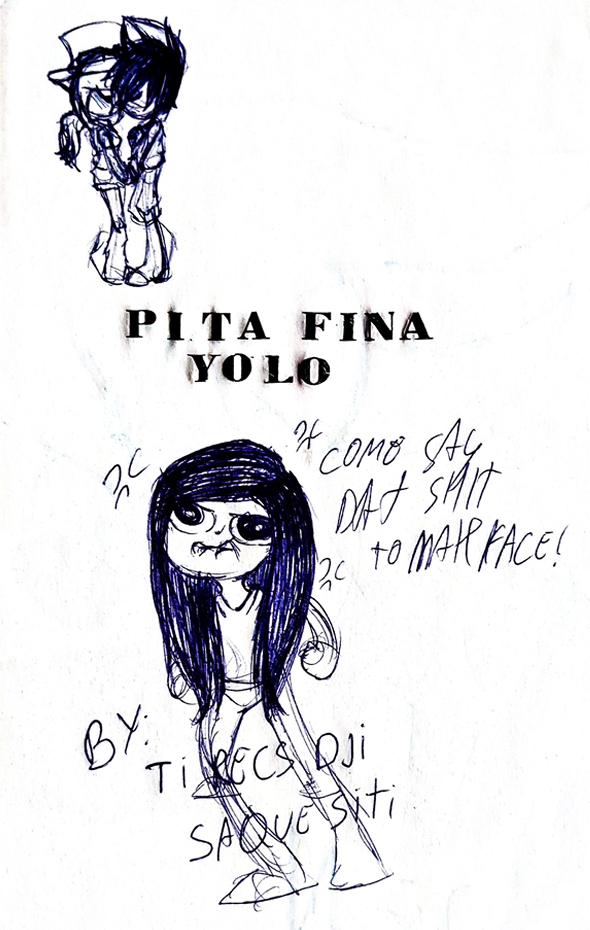 PITA FINA
YOLO
COME SAY
DAT SHIT
TO MAH FACE!
BY:
TI RECS DJI
SAQUE SITI